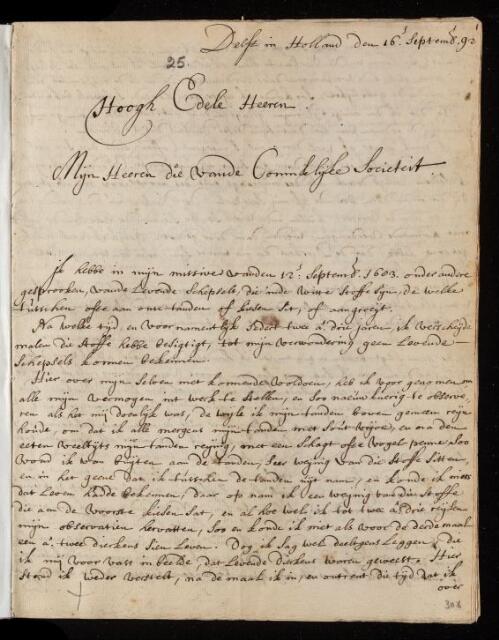 Delft in Holland den 16.e Septemb. 92
25.
Hoogh Edele Heeren.
Mijn Heeren die vande Coninklijke Societeit.
Ik hebbe in mijn missive vanden 12.e Septemb. 1683. onder andere
gesprooken, vande Levende Schepsels, die inde Witte Stoffe sijn, de welke
tusschen ofte aan onse tanden of kiesen sit, of aangroeijt.
Na welke tijd, en voornamentlijk sedert twee a drie jaren, ik verscheijde
malen die Stoffe hebbe besigtigt, tot mijn verwondering geen Levende
Schepsels konnen bekennen.
Hier over mijn selven niet konnende voldoen, heb ik voor genomen om
alle mijn vermogen, int werk te stellen, en soo naeuwkeurig te observe,
ren als het mij doenlijk was, de wijle ik mijn tanden boven gemeen reijn
houde, om dat ik alle mergens mijn tanden met sout vrijve, en ora den
eeten veeltijts mijn tanden reijnig, met een schagt ofte vogel penne, soo
vond ik van buijten aan de tanden, seer weijnig van die Stoffe sitten,
en in het geene dat ik tusschen de tanden uijt nam, en konde ik niets
dat Leven hadde bekennen, daar op nam ik een weijnig van die Stoffe
die aan de voorste kiesen sat, en al hoe wel, ik tot twee a drie reijsen
mijn observatien hervatten, soo en konde ik niet als voor de derde maal
een a. twee dierkens sien Leven. Dog ik sag wel deeltgens Leggen, die
ik mij voor vast in beelde, dat Levende dierkens waren geweest. Hier
stond ik weder verstelt, na de maal ik in, en ontrent die tijd dat ik
over
308